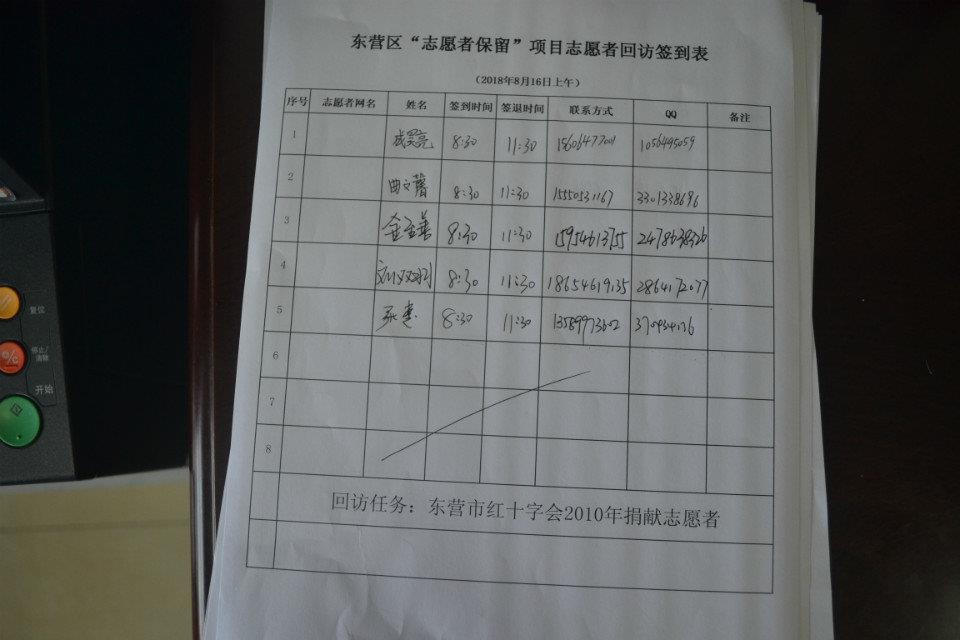 东营区“志愿者保留”项目志愿者回访签到表
（2018年8月16日上午）
序号 志愿者网名 姓名 签到时间 签退时间 联系方式 QQ 备注
1 8:30 11:30 1056495059
2 曲文馨 8:30 11:30 15550531167 3301338696
3 金圣善 8:30 11:30 15954613755 2478638326
4 刘双利 8:30 11:30 18654619135 2864172077
5 8:30 11:30 13589973602
6
7
8
回访任务：东营市红十字会2010年捐献志愿者
复位
停止/
清除
C
开始